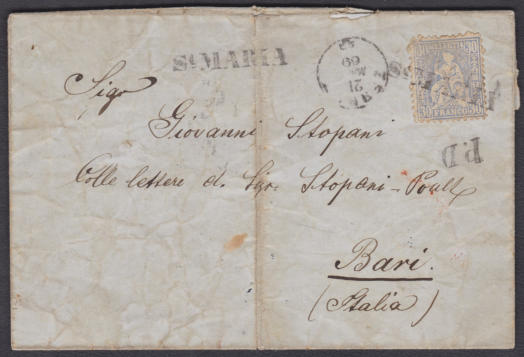 Sᵗ MARIA
21
69
50 50
FRANCO
P.D
Sigʳ
Giovanni Stopani
Colle lettere d. Sigr. Stopani-Poult
Bari.
(Italia)